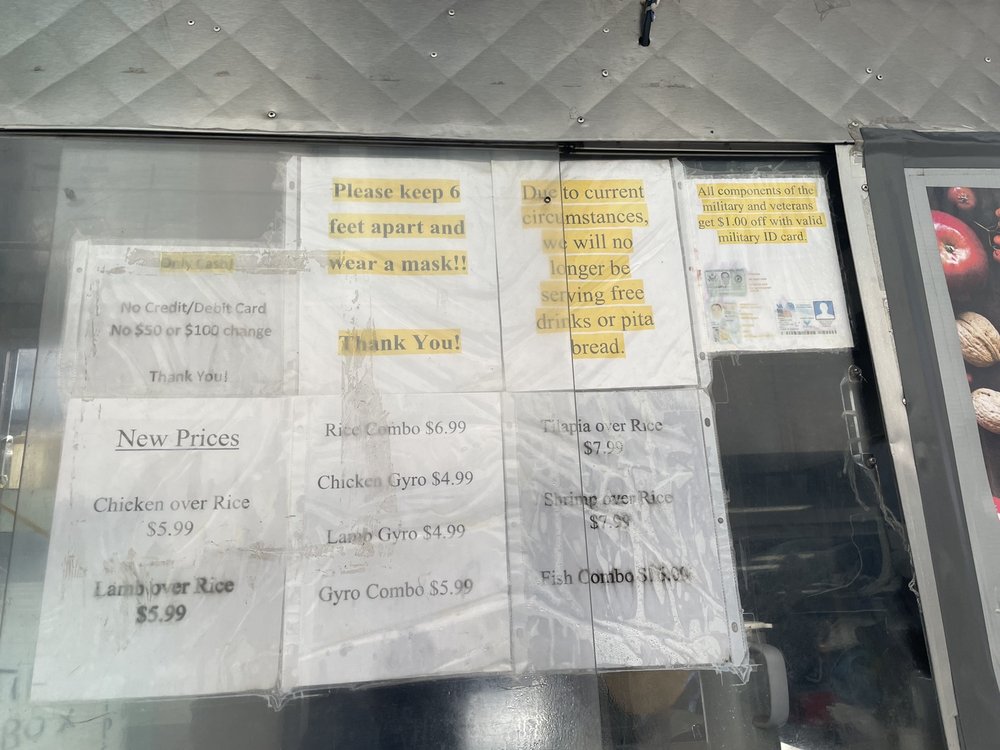 Only Cash!
No Credit/Debit Card
No $50 or $100 change
Thank You!
Please keep 6
feet apart and
wear a mask!!
Thank You!
Due to current
circumstances,
we will no
longer be
serving free
drinks or pita
bread.
All components of the
military and veterans
get $1.00 off with valid
military ID card.
New Prices
Chicken over Rice
$5.99
Lamb over Rice
$5.99
Rice Combo $6.99
Chicken Gyro $4.99
Lamb Gyro $4.99
Gyro Combo $5.99
Tilapia over Rice
$7.99
Shrimp over Rice
$7.99
Fish Combo